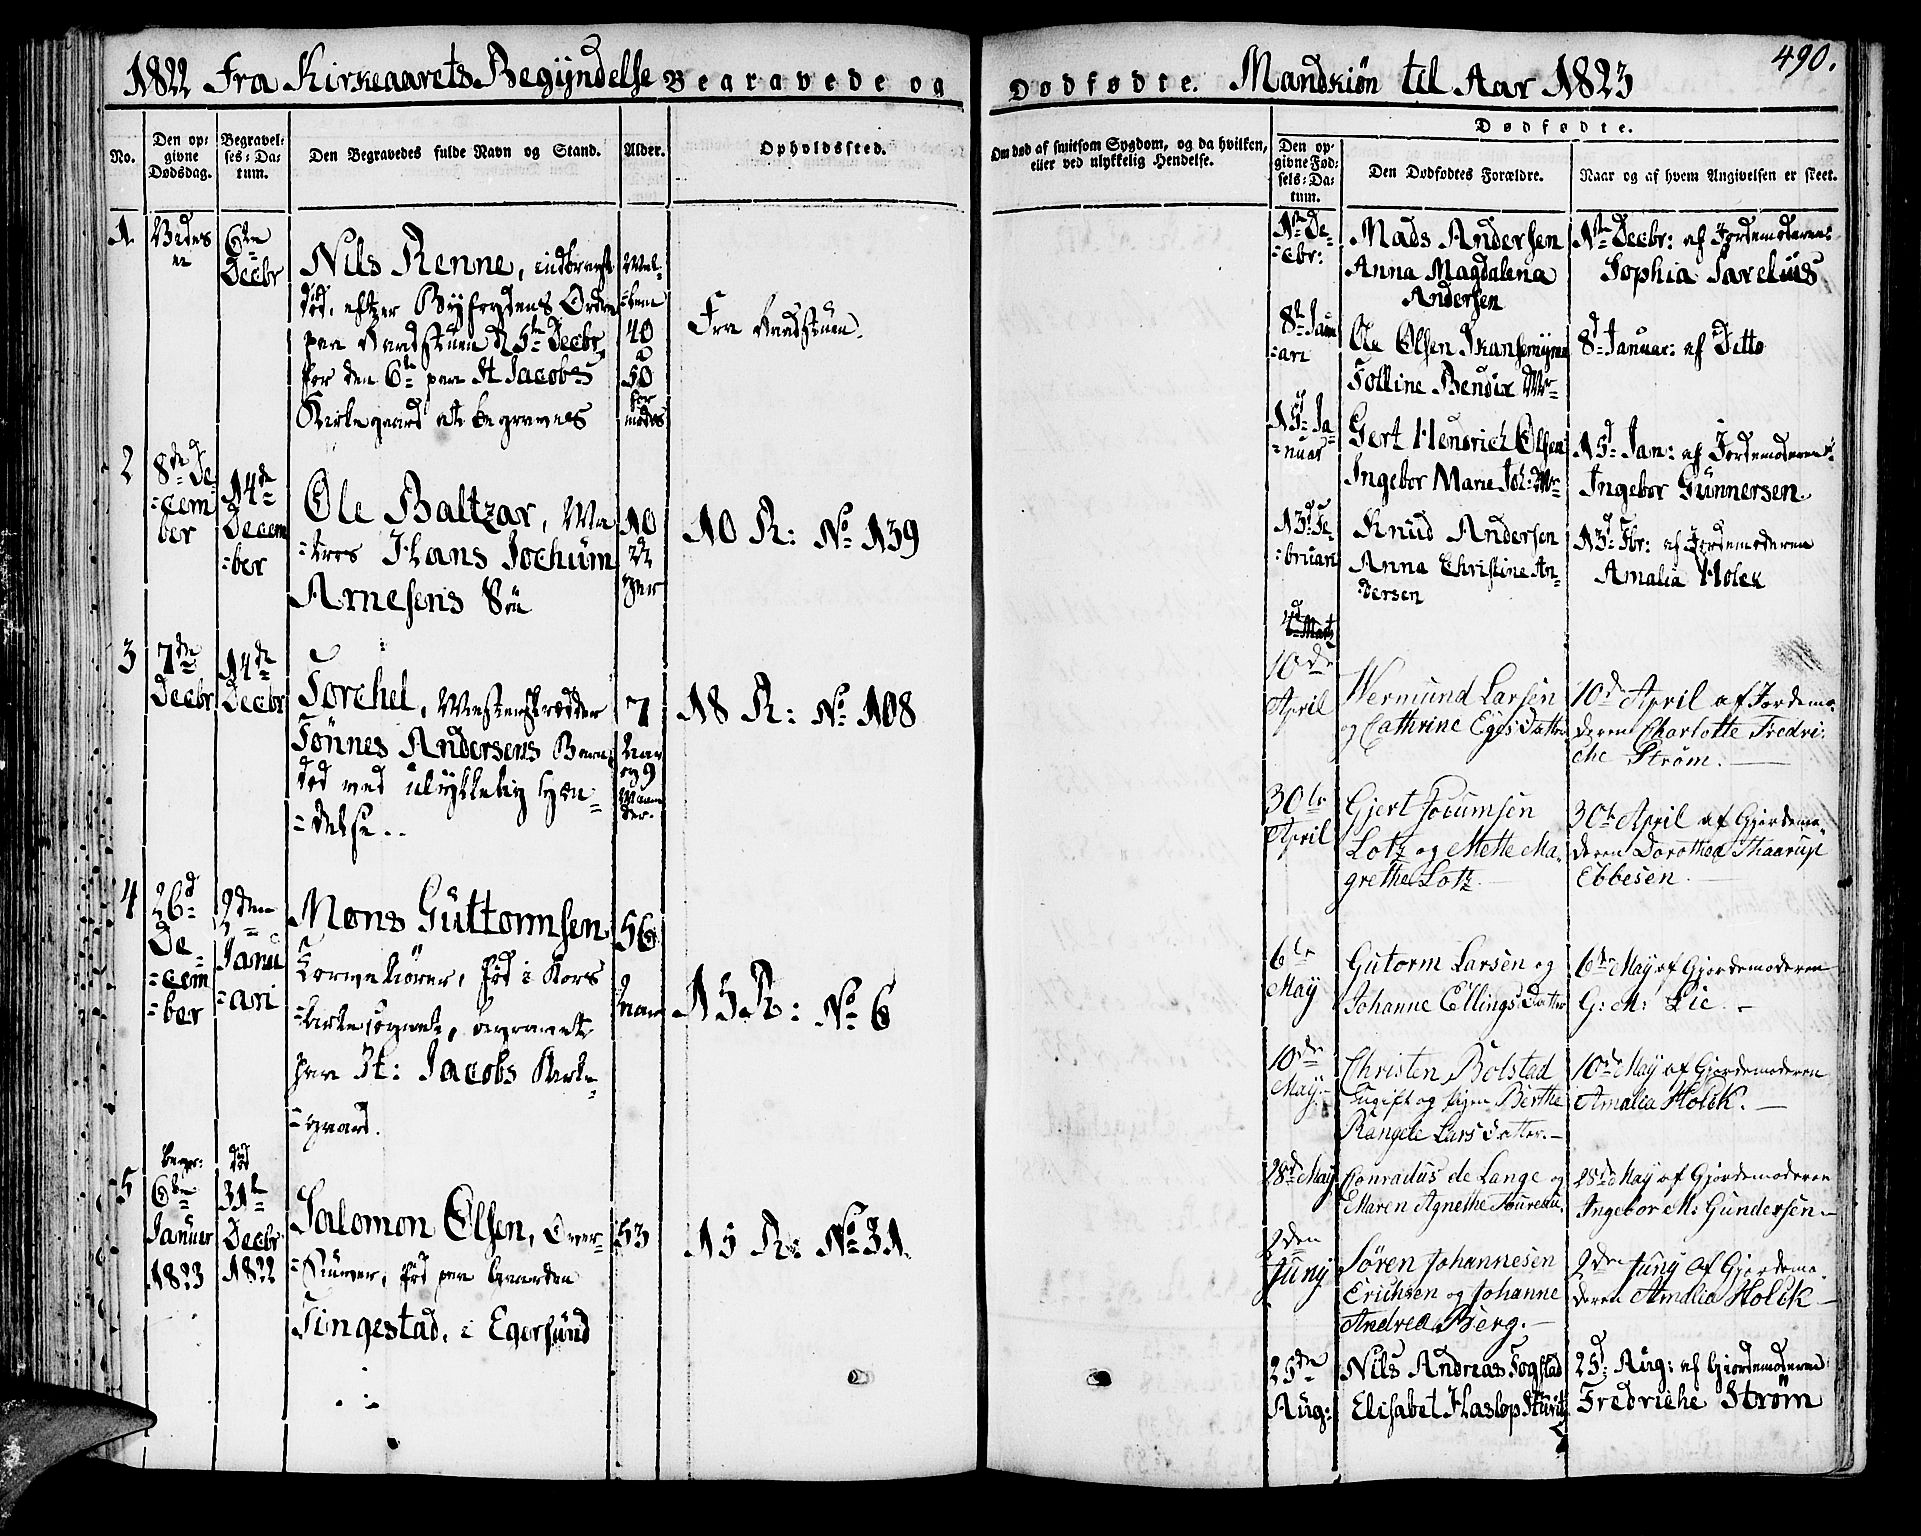 1822 Fra Kirkeaarets Begyndelse Begravede og
No.
Den op-
givne
Dødsdag.
Begravel-
ses-Da-
tum.
Den Begravedes fulde Navn og Stand.
Alder.
Opholdssted.
1
6te
Decbr
Nils Renne, indbragt
død, efter Byfogdens Ordre
paa Raadstuen d 5te Decbr
for den 6te paa St Jacobs
Kirkegaard at begraves
40
a
50
for
modes
Fra Raadstuen.
2
8de De
=cem
ber
14de
Decem
=ber
Ole Baltzar, Ma
=tros Hans Jochum
Arnesens Søn
10
10 R: No 139
3
7de
Decbr
14de
Decbr
Torchel, Mesterskrædder
Tønnes Andersens Barn,
død ved ulykkelig Hæn-
=delse..
7
Aar
og 9
Maane
der.
18 R: No 108
4
26d
De-
=cem
=ber
2den
Janu
=ari
Mons Guttormsen
født i Kors
=kirkesognet, begravet
paa St: Jacobs Kirke-
=gaard.
56
Aar
15 R: No 6
5
begr:
6te
Januar
1823
død
31te
Decbr
1822
Salomon Olsen,
født paa Gaarden
Tingestad, i Egersund
53
15 R: No 31.
Dødfødte. Mandkiøn til Aar 1823
490.
Om død af smitsom Sygdom, og da hvilken,
eller ved ulykkelig Hendelse.
Dødfødte.
Den op-
givne Fød-
sels-Da-
tum.
Den Dødfødtes Forældre.
Naar og af hvem Angivelsen er skeet.
1te De-
=cbr:
Mads Andersen
Anna Magdalena
Andersen
1te Decbr: af Jordemoderen:
Sophia Sarelius
8de Janu
=ari
Ole Olsen
Tolline Bendix Dtr
8d Januar: af Ditto
15d Ja-
=nuar
Gert Hendrich Olsen
Ingebor Marie Joh: Dtr
15d Jan: af Jordemoderen:
Ingebor Gunnersen.
13d Fe-
=bruari
Knud Andersen
Anna Christine An-
dersen
13d Fbr: af Jordemoderen
Amalia Holck
10de
April
Wermund Larsen
og Cathrine Egesdatter
10d April af Jordemo-
deren Charlotte Fredri-
che Strøm.
30te
April
Gjert Jocumsen
Lotz og Mette Ma-
grethe Lotz
30te April af Gjordemo-
deren Dorothea Skaarup
Ebbesen
6te
May
Gutorm Larsen og
Johanne Ellingsdatter
6te May af Gjordemoderen
G: M: Lie. -
10de
May
Christen Bolstad
Ugift og Pigen Birthe
Rangele Larsdatter.-
10de May af Gjordemoderen
Amalia Holck.
28d May
Conradus de Lange og
Maren Agnethe
28d May af Gjordemoderen
Ingebor M: Gundersen-
2den
Juny
Søren Johannesen
Erichsen og Johanne
Andrea Berg.-
2den Juny af Gjordemo-
deren Amalia Holck-
25de
Aug:
Nils Andreas Fogstad
Elisabet Haslop
25d: Aug: af Gjordemoderen
Fredriche Strøm